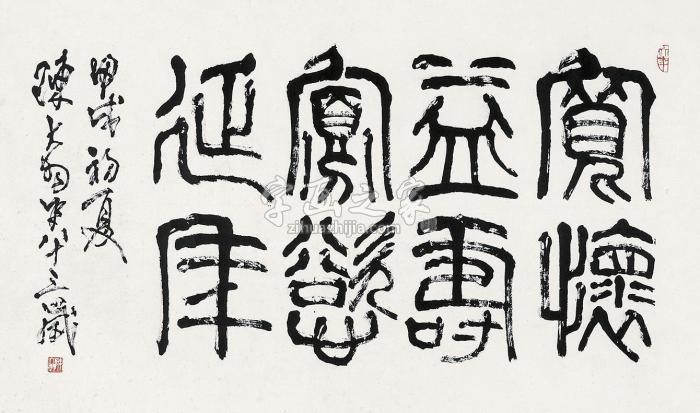 寬懷
益壽
寡慾
延年
甲戌初夏
陳大羽年八十三歲
字画之家
zihuashijia.com